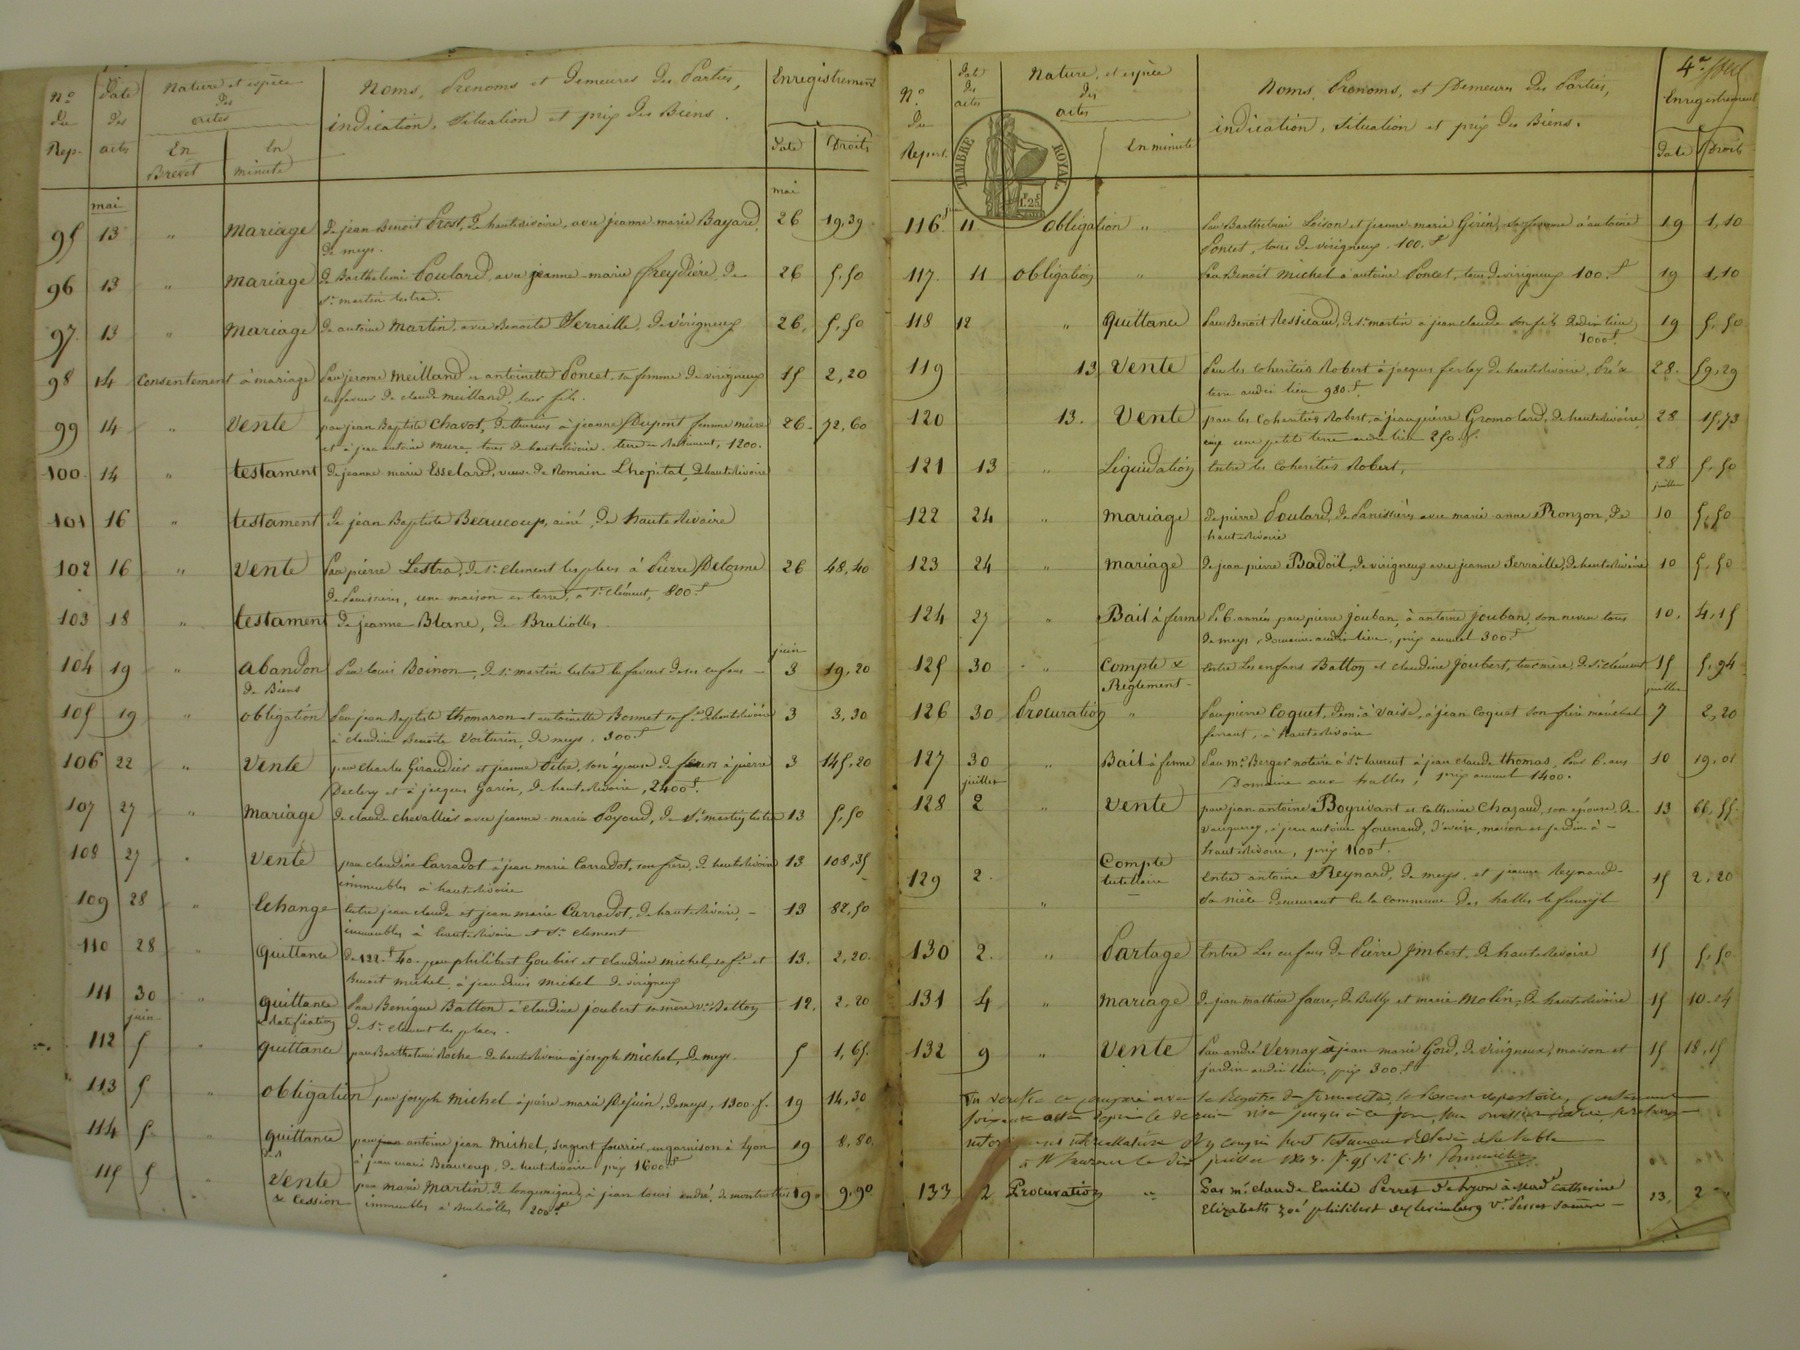 N.o du Rep. Date des actes Nature et espèce des actes Noms, Prenoms et Demeures des Parties, Enregistrement
En Brevet En minute indication, situation et prix des Biens. Date Droits
mai mai
95 13 " mariage de jean Benoit Prost, de hauterivoire, avec jeanne marie Bayard, 26 19,39
de meys.
96 13 " mariage de Barthelemi Poulard, avec jeanne marie freydière, de 26 5,50
St. martin lestra.
97. 13 " mariage de antoine Martin, avec Benoite Serraille, de virigneux 26, 5,50
98 14 Consentement à mariage Par jerome Meilland et antoinette Poncet, sa femme de virigneux 15 2,20
en faveur de claude meilland, leur fils.
99 14 " Vente par jean Baptiste Chavot, de à jeanne Dupont femme mure 26. 72,60
et à jean antoine mure, tous de hauterivoire. terre et Batiment, 1200.
100. 14 " testament de jeanne marie Esselard, veuve de Romain Lhopital, de hauterivoire
101 16 " testament de jean Baptiste Beaucoup, ainé, de hauterivoire
102 16 " Vente Par pierre Lestra, de St. Clement les places à Pierre Delorme 26 48,40
de Panissières, une maison et terre, à St. clément, 800 f
103 18 " testament de jeanne Blanc, de Brulioles
juin
104 19 " abandon Par louis Boinon, de St. martin lestra en faveur de ses enfans 3 19,20
de Biens
105 19 " obligation Par jean Baptiste thomaron et antoinette Bonnet sa fe. de hauterivoire 3 3,30
à claudine Benoite Voiturin, de meys. 300 f
106 22 " Vente par charles Giraudier et jeanne Pitre, son épouse de feurs à pierre 3 145,20
Declery et à jacques Garin, de hauterivoire, 2400 f.
107 27 " mariage de claude chevallier avec jeanne marie Poyoud, de St. martin lestra 13 5,50
108 27 " Vente par claudine Carradot à jean marie Carradot, son frère, de hauterivoire 13 108,35
immeubles à hauterivoire
109 28 " Echange Entre jean claude et jean marie Carradot, de hauterivoire, 13 82,50
immeubles à hauterivoire et St. clement
110 28 " quittance de 122 f 40. par philibert Goubier et claudine michel, sa fe. et 13. 2,20.
Benoit michel, à jean denis michel de virigneux
111 30 " quittance Par Benigne Batton à claudine joubert sa mère ve. Batton 12. 2,20
& Ratification de St. clement les places.
juin
112 5 " quittance par Barthelemi Roche de hauterivoire à joseph Michel, de meys. 5 1,65.
113 5 " obligation par joseph Michel à pierre marie Dejoin, de meys, 1300. f. 19 14,30
114 5 " quittance par antoine jean Michel, sergent fourrier, en garnison à Lyon 19 8,80.
à jean marie Beaucoup, de hauterivoire prix 1600 f
115 5 " Vente par marie Martin de longessaigne, à jean louis andré, de montrottier 19 9,90
& cession immeubles à Brulioles 200 f
4e. feuil
N.o du Repert. Date des actes Nature, et espèce des actes Noms, Prenoms, et Demeures des Parties, Enregistrement
En minute indication, situation et prix des Biens. Date Droits
TIMBRE ROYAL
1.25
116. 11 obligation " Par Barthelemi Loison et jeanne marie Girin, sa femme à antoine 19 1,10
Poncet, tous de virigneux. 100. f
117. 11 obligation " Par Benoit Michel à antoine Poncet, tous de virigneux 100. f 19 1,10
118 12 " quittance Par Benoit Ressicaud, de St. martin à jean claude son fils dudit lieu 19 5,50
1000 f.
119 13 Vente Par les Cohéritiers Robert à jacques ferlay de hauterivoire, Pré et 28. 59,29
terre audit lieu 980. f
120 13. Vente par les Cohéritiers Robert, à jean pierre Gromolard, de hauterivoire 28 15,73
une petite terre audit lieu 250 f.
121 13 " Liquidation Entre les Cohéritiers Robert, 28 5,50
juillet
122 24 " mariage de pierre Poulard, de Panissières avec marie anne Ronzon, de 10 5,50
hauterivoire
123 24 " mariage de jean pierre Badoil, de virigneux avec jeanne Serraille, de hauterivoire 10 5,50
124 27 " Bail à ferme de 6 années par pierre jouban, à antoine jouban, son neveu tous 10. 4,15
de meys, Domaine audit lieu, prix annuel 300 f
125 30 " Compte & Entre les enfans Batton et claudine joubert, leur mère, de St. clément 15 5,94
Règlement
juillet
126 30 Procuration " Par pierre Coquet, à Vaise, à jean Coquet son frère maréchal 7 2,20
ferrant, à hauterivoire
127 30 " Bail à ferme Par me. Berger notaire à St. laurent à jean claude thomas, pour 6 ans 10 19,01
Domaine aux halles, prix annuel 1400.
juillet
128 2 " Vente par jean antoine Boyrivant et catherine Chazaud, son épouse, de 13 66,55.
vaugneray, à jean antoine fournand, d'aveize, maison et jardin à
hauterivoire, prix 1100 f.
129 2. " Compte Entre antoine Reynard, de meys, et jeanne Reynard 15 2,20
tutellaire sa nièce demeurant en la commune des halles le fenoyl
130 2. " Partage Entre les enfans de Pierre Imbert, de hauterivoire 15 5,50
131 4 " mariage de jean mathieu faure, de Bully et marie Molin, de hauterivoire 15 10.04
132 9 " Vente Par andré Vernay à jean marie Gord, de virigneux, maison et 15 18,15
jardin audit lieu, prix 300 f
Vu vérifié et comparé avec le Registre de formalité, le présent repertoire, contenant
133 2 Procuration " Par mr. claude Emile Perret de Lyon à mad. Catherine 13, 2
Elizabeth zoé philibert ve. Perret sa mère